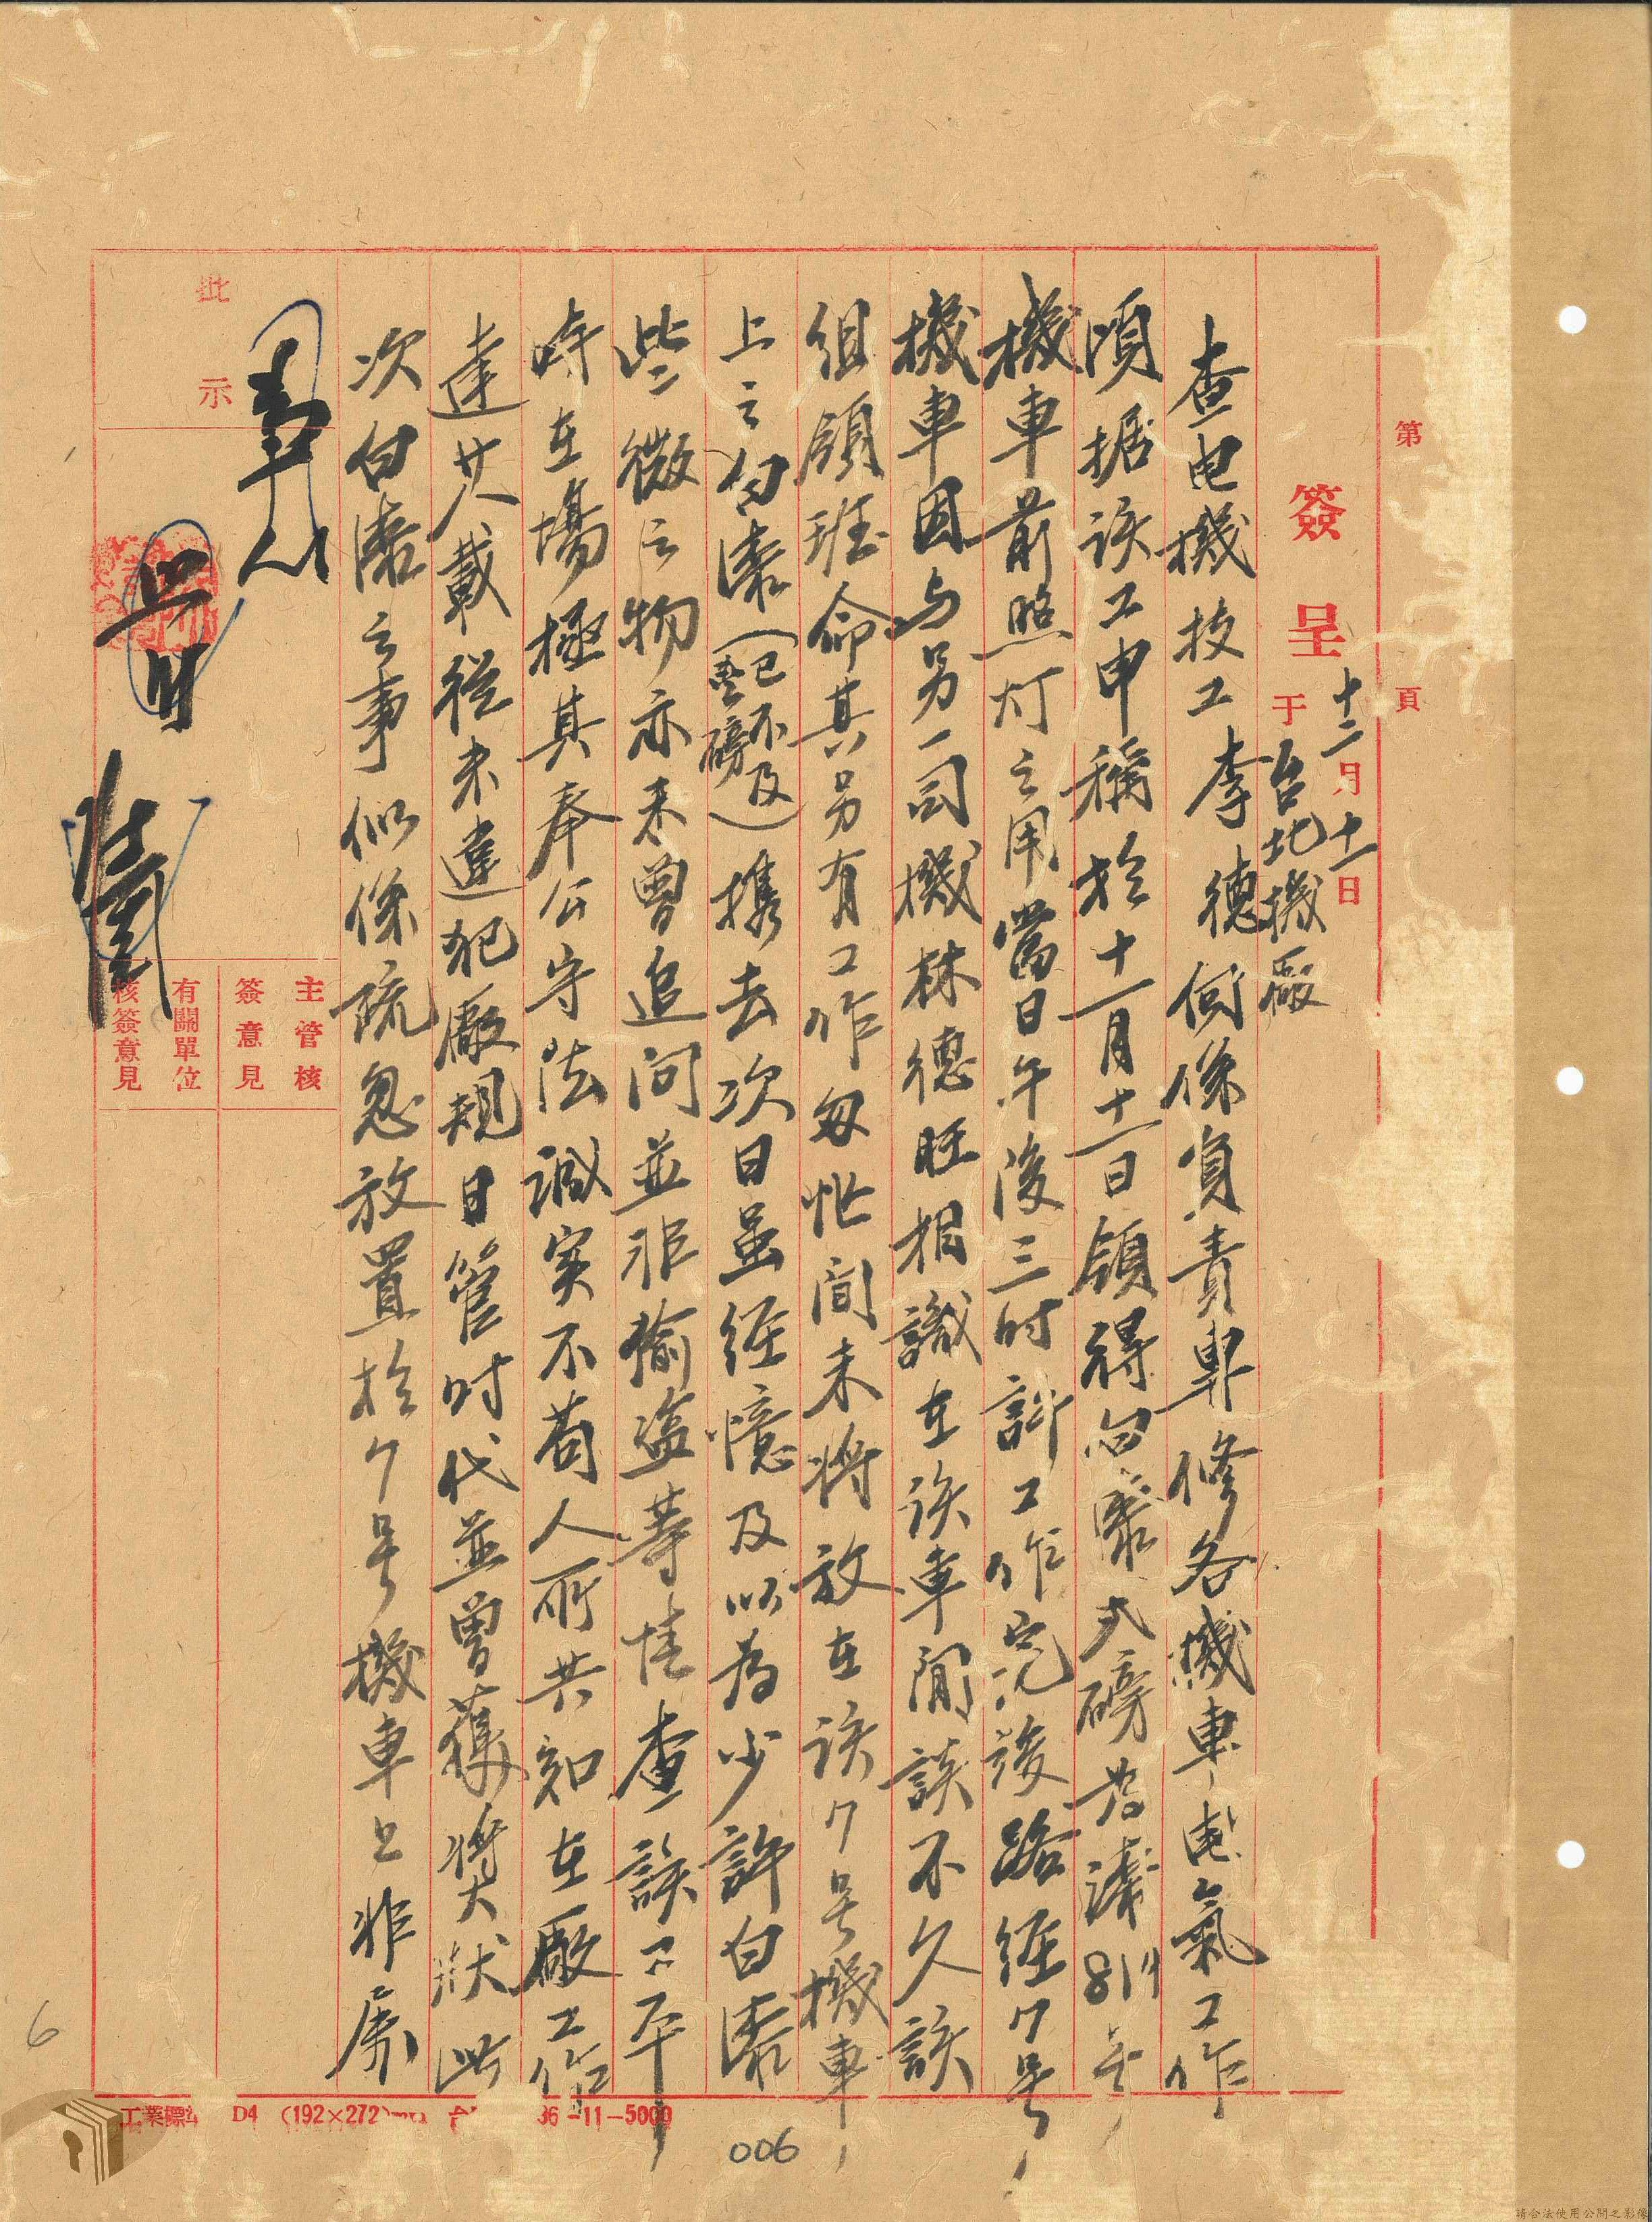 第 頁
簽呈 十二月十一日
于台北機廠
查电機技工李德何係負責專修各機車电氣工作
頃据該工申稱於十一月十一日領得白漆弍磅為漆811号
機車前照灯之用當日午後三时許工作完後路經7号
機車因与另一司機林德旺相識在該車閒談不久該
組領班命其另有工作匆忙間未将放在該7号機車
上之白漆(已不及壹磅)携去次日虽經憶及以為少許白漆
些微之物亦未曾追問並非偷盗等情查該工平
時在場極其奉公守法誠实不苟人所共知在廠工作
達廿八載從未違犯廠規日管时代並曾獲奬狀此
次白漆之事似係疏忽放置於7号機車上非屬
批示
主管核簽意見
有關單位核簽意見
工業標 D4 (192×272) 36-11-5000
006
6
請合法使用公開之影像